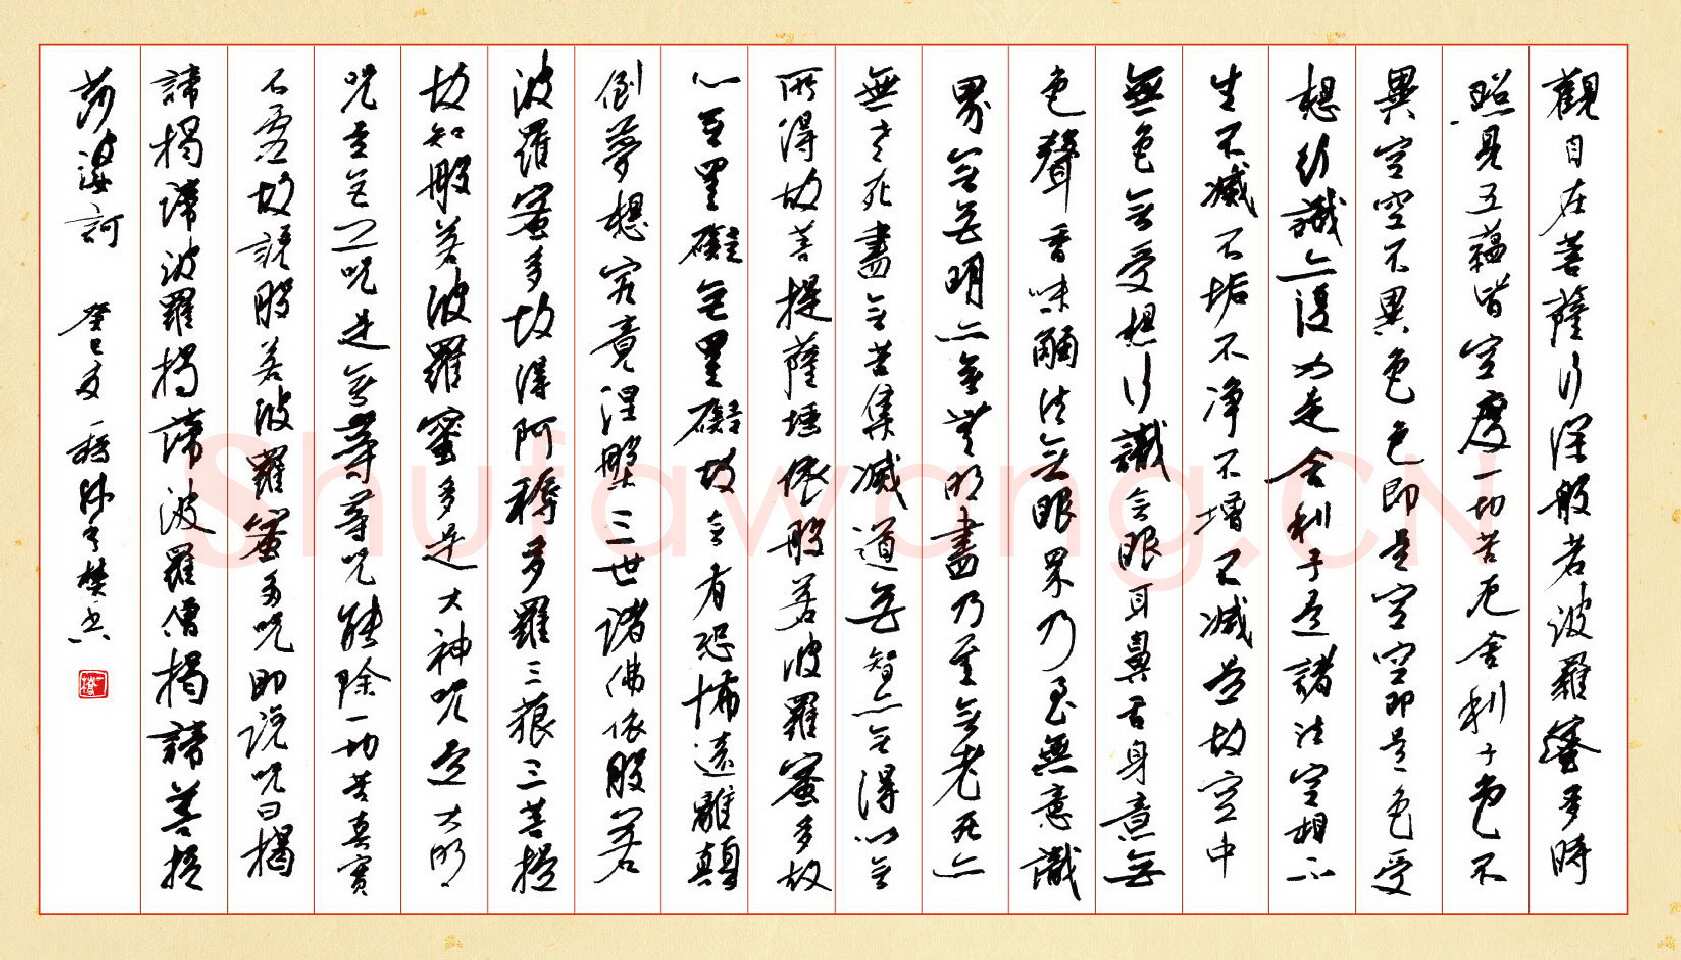 觀自在菩薩行深般若波羅蜜多時
照見五蘊皆空度一切苦厄舍利子色不
異空空不異色色即是空空即是色受
想行識亦復如是舍利子是諸法空相不
生不滅不垢不净不增不減是故空中
無色無受想行識無眼耳鼻舌身意無
色聲香味觸法無眼界乃至無意識
界無無明亦無無明盡乃至無老死亦
無老死盡無苦集滅道無智亦無得以無
所得故菩提薩埵依般若波羅蜜多故
心無罣礙無罣礙故無有恐怖遠離顛
倒夢想究竟涅槃三世諸佛依般若
波羅蜜多故得阿耨多羅三藐三菩提
故知般若波羅蜜多是大神咒是大明
咒是無上咒是無等等咒能除一切苦真實
不虛故說般若波羅蜜多咒即說咒曰揭
諦揭諦波羅揭諦波羅僧揭諦菩提
莎婆訶 癸巳夏
Shufawang.CN